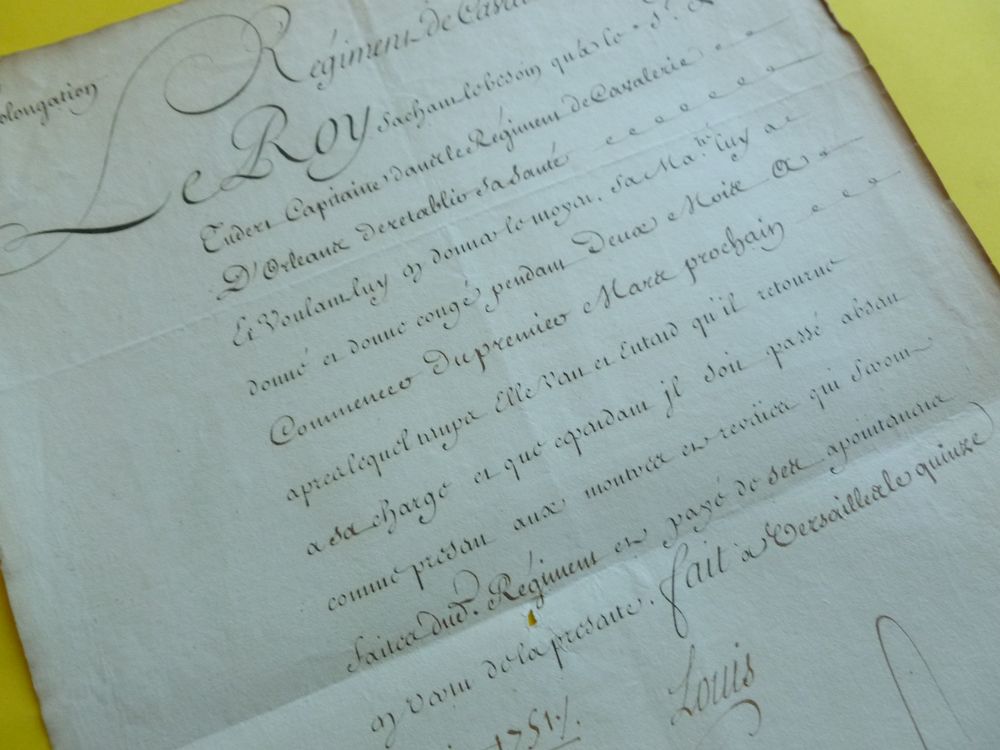 olongation
Régiment de Caval
Le Roy sachant le besoin qu'a le S.r
Enders Capitaine dans le Régiment de Cavalerie
D'Orleans de retablir sa santé
Et Voulant luy en donner le moyen, Sa Ma.té luy a
donné et donne congé pendant Deux Mois a
Commencer Du premier Mars prochain
apres lequel temps Elle Veut et Entend qu'il retourne
a sa charge et que cependant il soit passé absent
comme present aux montres et reveües qui seront
faites dud. Régiment et payé de ses apointemens
en vertu de la presente. fait à Versailles le quinze
1751.
Louis